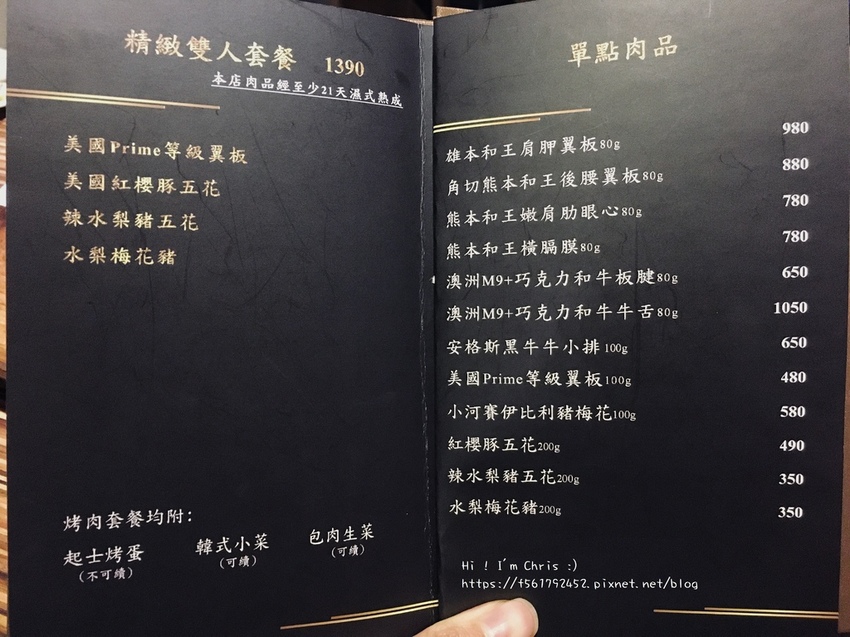 精緻雙人套餐 1390
本店肉品經至少21天濕式熟成
美國Prime等級翼板
美國紅櫻豚五花
辣水梨豬五花
水梨梅花豬
烤肉套餐均附:
起士烤蛋 韓式小菜 包肉生菜
(不可續) (可續) (可續)
單點肉品
雄本和王肩胛翼板80g 980
角切熊本和王後腰翼板80g 880
熊本和王嫩肩肋眼心80g 780
熊本和王橫膈膜80g 780
澳洲M9+巧克力和牛板腱80g 650
澳洲M9+巧克力和牛牛舌80g 1050
安格斯黑牛牛小排100g 650
美國Prime等級翼板100g 480
小河賽伊比利豬梅花100g 580
紅櫻豚五花200g 490
辣水梨豬五花200g 350
水梨梅花豬200g 350
Hi ! I'm Chris :)
https://f561792452.pixnet.net/blog